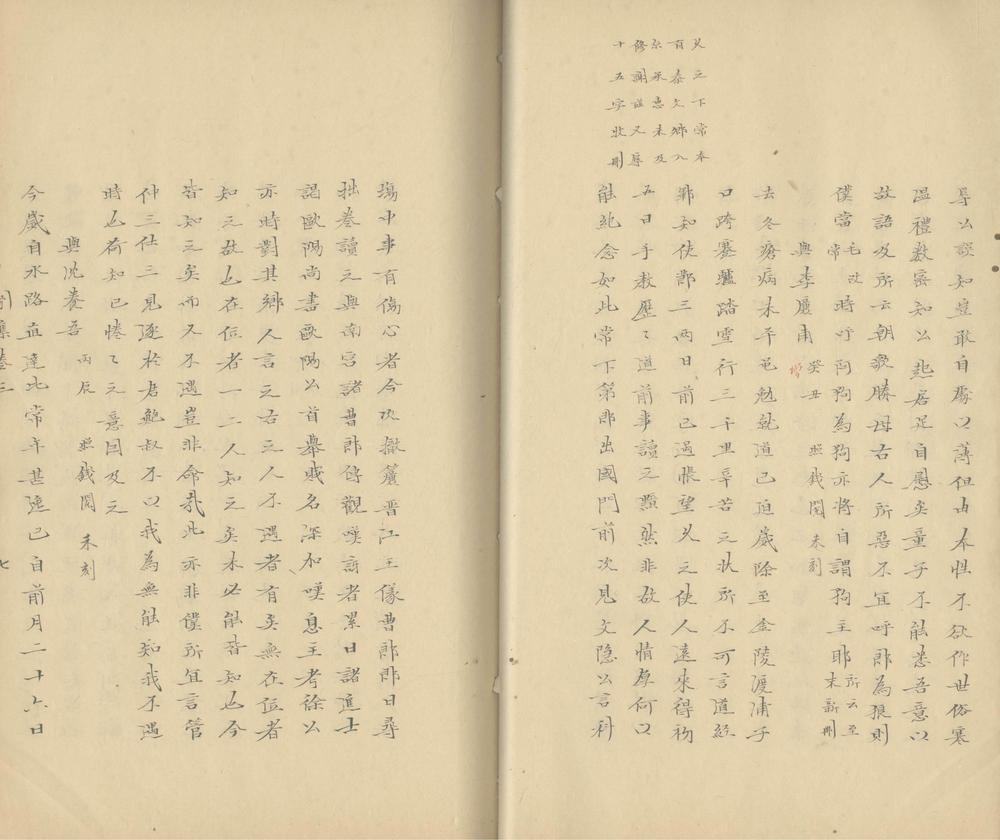 乆之下常本
百泰文鄉八
糸承惠未及
修謝茲又辱
十五字狀刪
辱公談知豈敢自廢以薄但由本性不欲作世俗寒
溫禮數密知公起居足自慰矣童子不能悉吾意以
故語及所云朝歌勝母古人所惡不宜呼郎為狼則
僕當毛改常時呼阿狗為狗亦將自謂狗主耶所云至末新刪
與李屨甫 癸丑 照錢閱 未刻
增
去冬瘡病未平芼勉就道已迫歲除至金陵渡浦子
口跨蹇驢踏雪行三千里辛苦之狀所不可言道經
鄴知使鄀三兩日前已過悵望乆之使人遠來得初
五日手教歷〻道前事讀之黯然非故人情厚何以
能紀念如此常下第郎出國門前次見文隱公言科
塲中事有傷心者今次撤簾晉江王偀曹郎郎日尋
拙卷讀之與南宮諸曹郎傳觀嘆訝者累日諸進士
謁歐陽尚書歐陽公首舉賤名深加嘆息主考徐公
亦時對其鄉人言之古之人不遇者有矣無在位者
知之故也在位者一二人知之矣未必能皆知也今
皆知之矣而又不遇豈非命哉此亦非僕所宜言管
仲三仕三見逐於君鮑叔不以我為無能知我不遇
時也荷知已惓〻之意因及之
與沈養吾 丙辰 照錢閱 未刻
今歲自水路直達比常年甚遲已自前月二十六日
別集卷三 七